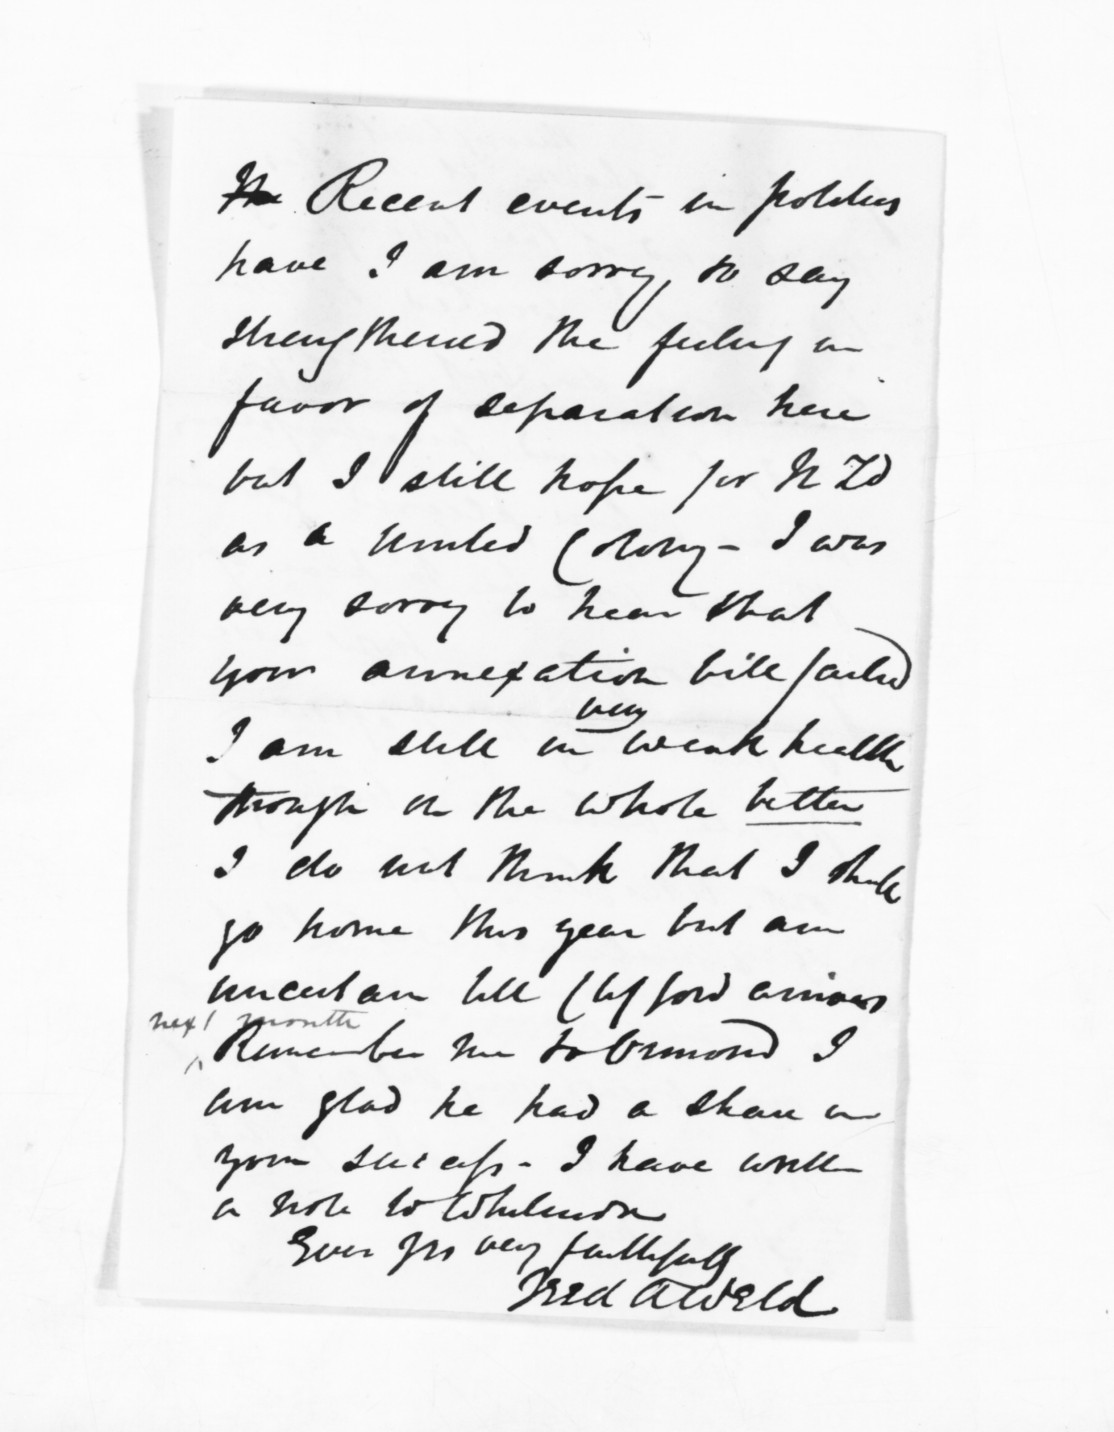 Recent events in politics
have I am sorry, to say
strengthened the feeling in
favor of separation here
but I still hope for N Zd
as a united Colony - I was
very sorry to hear that
your annexation bill failed
I am still in very weak health
though on the whole better
I do not think that I shall
go home this year but am
uncertain till Clifford arrives
next month
Remember me to Ormond I
am glad he had a share in
your success - I have written
a note to Whitmore
Ever yrs very faithfully
Fred A Weld